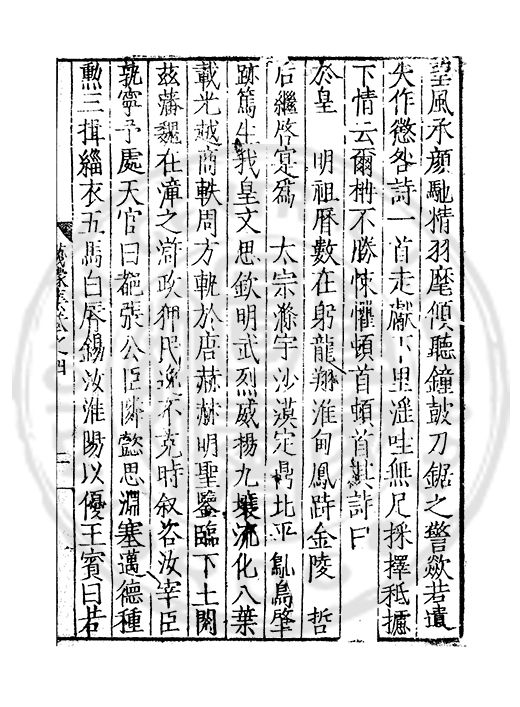 望風承顏馳情羽麾傾聽鐘鼓刀鋸之警歘若遺
失作懲咎詩一首走獻下里滛吐無尺採擇秪攄
下情云爾柟不勝悚懼頓首頓首其詩曰
於皇　明祖曆數在躬龍翔淮甸鳳跱金陵　哲
后繼啓寔爲　太宗滌宇沙漠定鼎北平鳦鳥肇
跡篤生我皇文思欽明武烈威揚九壤流化八葉
載光越商軼周方軌於唐赫赫明聖鑒臨下土閔
茲藩魏在漳之滸政狎民逸不克時叙咨汝宰臣
孰寧予處天官曰葩張公臣隣懿思淵塞邁德種
勲三揖緇衣五馬白脣錫汝淮陽以優王賓曰若
集卷之四
二